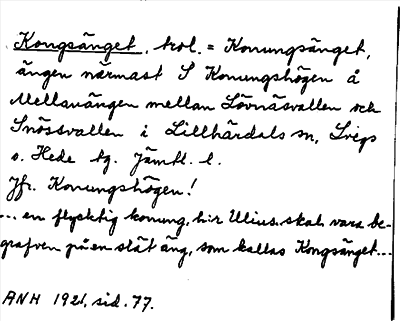 Kongsänget, trol. = Konungsänget,
ängen närmast S Konungshögen å
Mellanängen mellan Lövnäsvallen och
Snössvallen i Lillhärdals sn, Svegs
o. Hede tg. Jämtl. l.
Jfr. Konungshögen!
... en flycktig konung, hir Ulius. skah vara be-
grafven på en slät äng, som kallas Kongsänget...
ANH 1921, sid. 77.